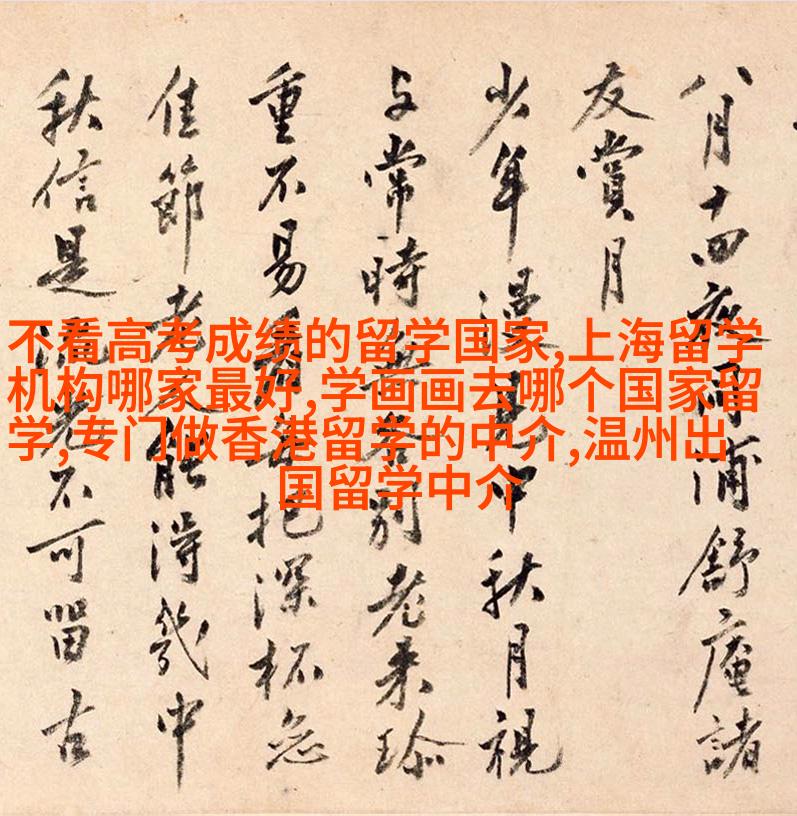 不看高考成绩的留学国家,上海留学
机构哪家最好,学画画去哪个国家留
学,专门做香港留学的中介,温州出
国留学中介
八月十四夜浦舒庵諸
友賞月
少年漫見中秋月視
与常時無各別老来珎
重不易看把深杯
佳節老人能得幾中
秋信是流光不可留古